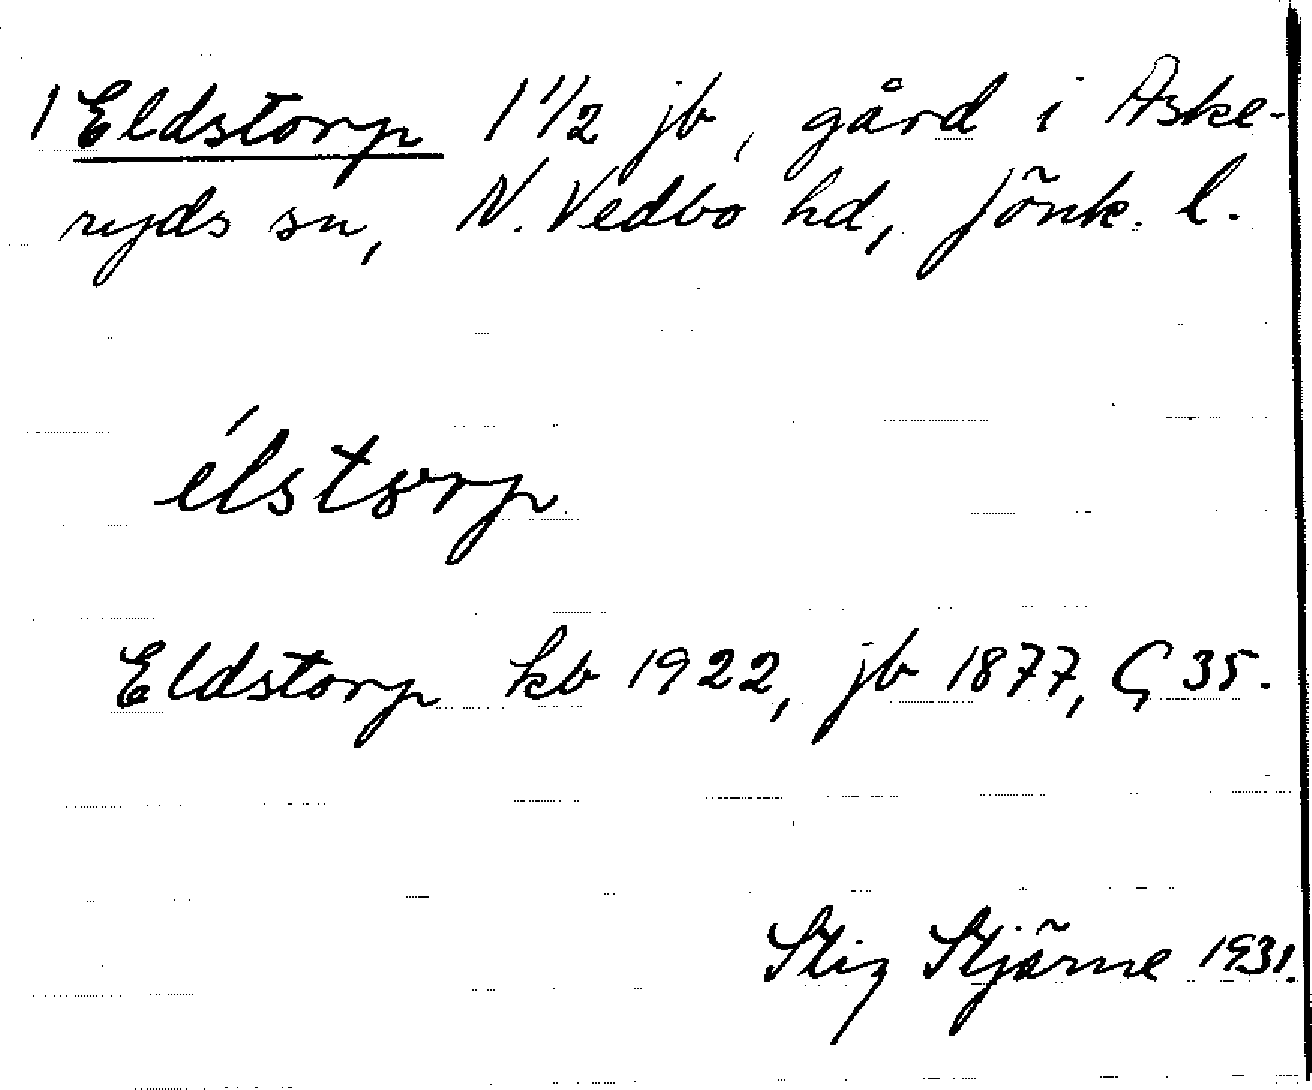 1 Eldstorp 1 1/2 jb, gård i Aske-
ryds sn, N. Vedbo hd, Jönk. l.
élstorp
Eldstorp kb 1922, jb 1877, G 35.
Stig Stjärne 1931.